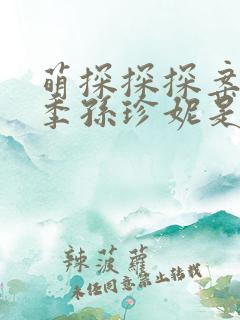 萌探探探案
季孫珍妮是
辣菠蘿
未经同意禁止转载